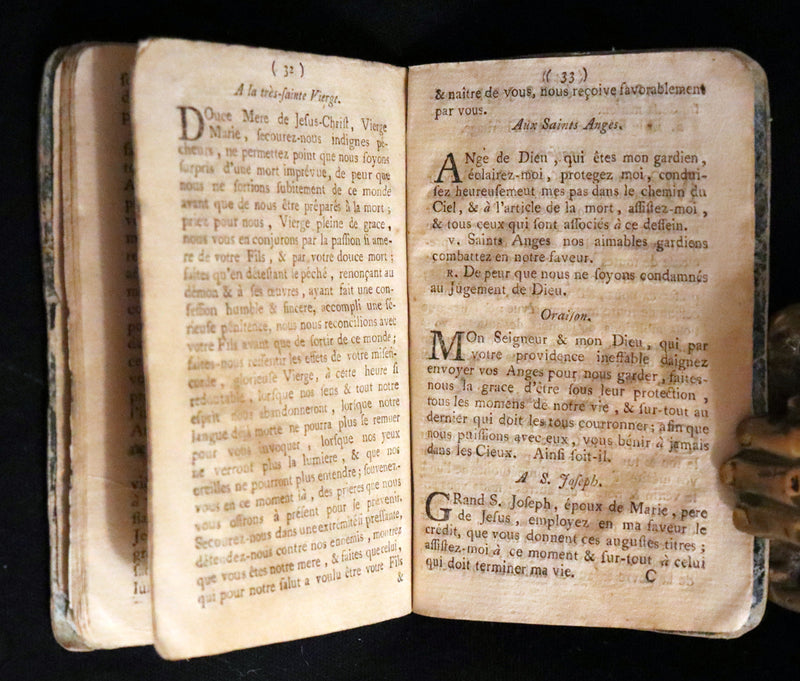 ( 32 )
A la très-ſainte Vierge.
DOuce Mere de Jeſus-Chriſt, Vierge
Marie, ſecourez-nous indignes pé-
cheurs, ne permettez point que nous ſoyons
ſurpris d'une mort imprévue, de peur que
nous ne ſortions ſubitement de ce monde
avant que de nous être préparés à la mort ;
priez pour nous, Vierge pleine de grace,
nous vous en conjurons par la paſſion ſi ame-
re de votre Fils, & par votre douce mort ;
faites qu'en déteſtant le péché, renonçant au
démon & à ſes œuvres, ayant fait une con-
feſſion humble & ſincere, accompli une ſé-
rieuſe pénitence, nous nous reconcilions avec
votre Fils avant que de ſortir de ce monde ;
faites-nous reſſentir les effets de votre miſéri-
corde, glorieuſe Vierge, à cette heure ſi
redoutable, lorſque nos ſens & tout notre
eſprit nous abandonneront, lorſque notre
langue déjà morte ne pourra plus ſe remuer
pour vous invoquer, lorſque nos yeux
ne verront plus la lumiere, & que nos
oreilles ne pourront plus entendre ; ſouvenez-
vous en ce moment là, des prieres que nous
vous offrons à préſent pour le prévenir.
Secourez-nous dans une extrémité ſi preſſante,
défendez-nous contre nos ennemis, montrez
que vous êtes notre mere, & faites que celui,
qui pour notre ſalut a voulu être votre Fils
&
( 33 )
& naître de vous, nous reçoive favorablement
par vous.
Aux Saints Anges.
ANge de Dieu, qui êtes mon gardien,
éclairez-moi, protegez moi, condui-
ſez heureuſement mes pas dans le chemin du
Ciel, & à l'article de la mort, aſſiſtez-moi,
& tous ceux qui ſont aſſociés à ce deſſein.
V. Saints Anges nos aimables gardiens
combattez en notre faveur.
R. De peur que nous ne ſoyons condamnés
au Jugement de Dieu.
Oraiſon.
MOn Seigneur & mon Dieu, qui par
votre providence ineffable daignez
envoyer vos Anges pour nous garder, faites-
nous la grace d'être ſous leur protection,
tous les momens de notre vie, & ſur-tout au
dernier qui doit les tous courronner ; afin que
nous puiſſions avec eux, vous bénir à jamais
dans les Cieux. Ainſi ſoit-il.
A S. Joſeph.
GRand S. Joſeph, époux de Marie, pere
de Jeſus, employez en ma faveur le
crédit, que vous donnent ces auguſtes titres ;
aſſiſtez-moi à ce moment & ſur-tout à celui
qui doit terminer ma vie.
C